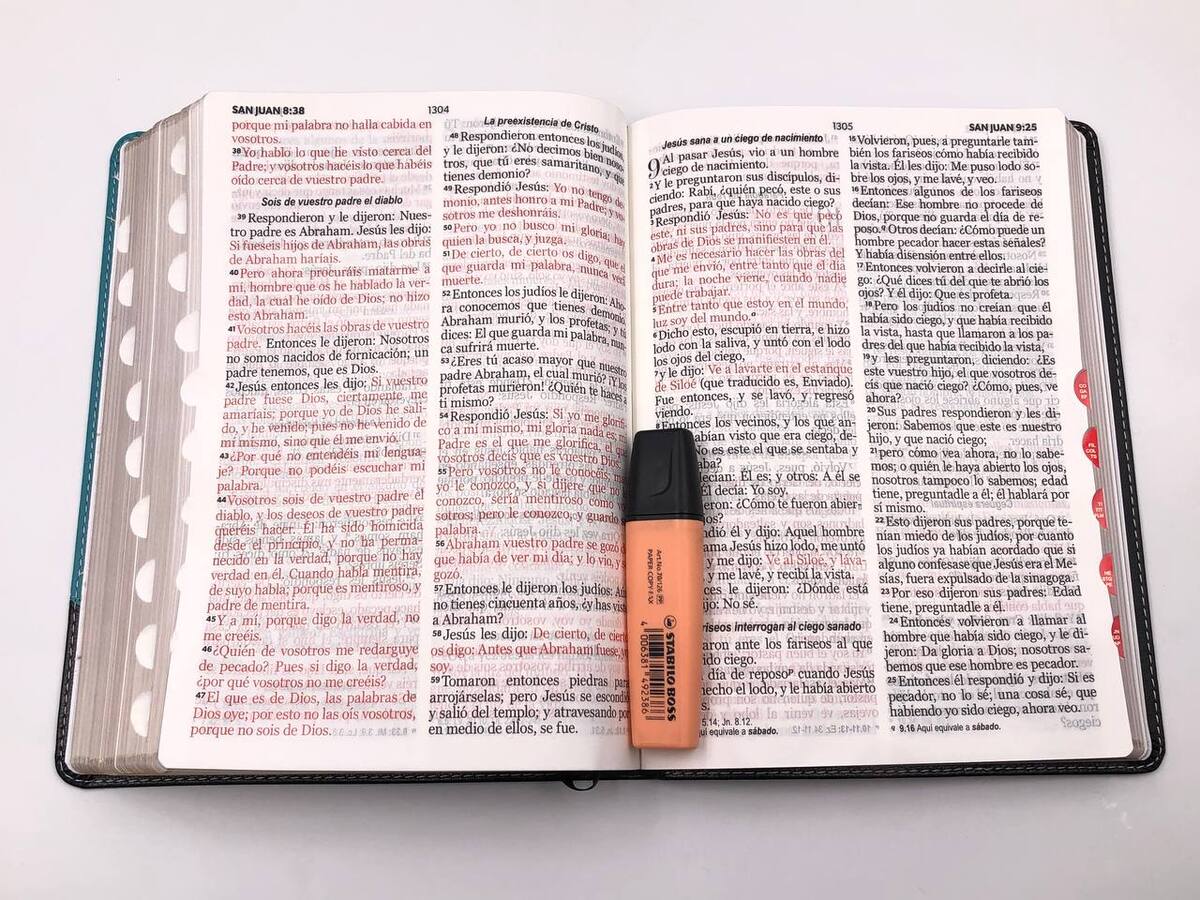 SAN JUAN 8:38
1304
porque mi palabra no halla cabida en
vosotros.
38 Yo hablo lo que he visto cerca del
Padre; y vosotros hacéis lo que habéis
oído cerca de vuestro padre.
Sois de vuestro padre el diablo
39 Respondieron y le dijeron: Nues-
tro padre es Abraham. Jesús les dijo:
Si fueseis hijos de Abraham, las obras
de Abraham haríais.
40 Pero ahora procuráis matarme a
mí, hombre que os he hablado la ver-
dad, la cual he oído de Dios; no hizo
esto Abraham.
41 Vosotros hacéis las obras de vuestro
padre. Entonces le dijeron: Nosotros
no somos nacidos de fornicación; un
padre tenemos, que es Dios.
42 Jesús entonces les dijo: Si vuestro
padre fuese Dios, ciertamente me
amaríais; porque yo de Dios he sali-
do, y he venido; pues no he venido de
mí mismo, sino que él me envió.
43 ¿Por qué no entendéis mi lengua-
je? Porque no podéis escuchar mi
palabra.
44 Vosotros sois de vuestro padre el
diablo, y los deseos de vuestro padre
queréis hacer. Él ha sido homicida
desde el principio, y no ha perma-
necido en la verdad, porque no hay
verdad en él. Cuando habla mentira,
de suyo habla; porque es mentiroso, y
padre de mentira.
45 Y a mí, porque digo la verdad, no
me creéis.
46 ¿Quién de vosotros me redarguye
de pecado? Pues si digo la verdad,
¿por qué vosotros no me creéis?
47 El que es de Dios, las palabras de
Dios oye; por esto no las oís vosotros,
porque no sois de Dios.
La preexistencia de Cristo
48 Respondieron entonces los judíos,
y le dijeron: ¿No decimos bien noso-
tros, que tú eres samaritano, y que
tienes demonio?
49 Respondió Jesús: Yo no tengo de-
monio, antes honro a mi Padre; y vo-
sotros me deshonráis.
50 Pero yo no busco mi gloria; hay
quien la busca, y juzga.
51 De cierto, de cierto os digo, que el
que guarda mi palabra, nunca verá
muerte.
52 Entonces los judíos le dijeron: Aho-
ra conocemos que tienes demonio.
Abraham murió, y los profetas; y tú
dices: El que guarda mi palabra, nun-
ca sufrirá muerte.
53 ¿Eres tú acaso mayor que nuestro
padre Abraham, el cual murió? ¡Y los
profetas murieron! ¿Quién te haces a
ti mismo?
54 Respondió Jesús: Si yo me glorifi-
co a mí mismo, mi gloria nada es; mi
Padre es el que me glorifica, el que
vosotros decís que es vuestro Dios.
55 Pero vosotros no le conocéis, mas
yo le conozco, y si dijere que no le
conozco, sería mentiroso como vo-
sotros; pero le conozco, y guardo su
palabra.
56 Abraham vuestro padre se gozó de
que había de ver mi día; y lo vio, y se
gozó.
57 Entonces le dijeron los judíos: Aún
no tienes cincuenta años, ¿y has visto
a Abraham?
58 Jesús les dijo: De cierto, de cierto
os digo: Antes que Abraham fuese, yo
soy.
59 Tomaron entonces piedras para
arrojárselas; pero Jesús se escondió
y salió del templo; y atravesando por
en medio de ellos, se fue.
1305
SAN JUAN 9:25
Jesús sana a un ciego de nacimiento
9 Al pasar Jesús, vio a un hombre
ciego de nacimiento.
2 Y le preguntaron sus discípulos, di-
ciendo: Rabí, ¿quién pecó, este o sus
padres, para que haya nacido ciego?
3 Respondió Jesús: No es que pecó
este, ni sus padres, sino para que las
obras de Dios se manifiesten en él.
4 Me es necesario hacer las obras del
que me envió, entre tanto que el día
dura; la noche viene, cuando nadie
puede trabajar.
5 Entre tanto que estoy en el mundo,
luz soy del mundo.
6 Dicho esto, escupió en tierra, e hizo
lodo con la saliva, y untó con el lodo
los ojos del ciego,
7 y le dijo: Ve a lavarte en el estanque
de Siloé (que traducido es, Enviado).
Fue entonces, y se lavó, y regresó
viendo.
8 Entonces los vecinos, y los que an-
abían visto que era ciego, de-
No es este el que se sentaba y
aba?
decían: Él es; y otros: A él se
Él decía: Yo soy.
eron: ¿Cómo te fueron abier-
ojos?
ndió él y dijo: Aquel hombre
ama Jesús hizo lodo, me untó
y me dijo: Ve al Siloé, y láva-
, y me lavé, y recibí la vista.
eron: ¿Dónde está
ijo: No sé.
riseos interrogan al ciego sanado
on ante los fariseos al que
ido ciego.
día de reposo cuando Jesús
hecho el lodo, y le había abierto
5.14; Jn. 8.12.
uí equivale a sábado.
15 Volvieron, pues, a preguntarle tam-
bién los fariseos cómo había recibido
la vista. Él les dijo: Me puso lodo so-
bre los ojos, y me lavé, y veo.
16 Entonces algunos de los fariseos
decían: Ese hombre no procede de
Dios, porque no guarda el día de re-
poso.q Otros decían: ¿Cómo puede un
hombre pecador hacer estas señales?
Y había disensión entre ellos.
17 Entonces volvieron a decirle al cie-
go: ¿Qué dices tú del que te abrió los
ojos? Y él dijo: Que es profeta.
18 Pero los judíos no creían que él
había sido ciego, y que había recibido
la vista, hasta que llamaron a los pa-
dres del que había recibido la vista,
19 y les preguntaron, diciendo: ¿Es
este vuestro hijo, el que vosotros de-
cís que nació ciego? ¿Cómo, pues, ve
ahora?
20 Sus padres respondieron y les di-
jeron: Sabemos que este es nuestro
hijo, y que nació ciego;
21 pero cómo vea ahora, no lo sabe-
mos; o quién le haya abierto los ojos,
nosotros tampoco lo sabemos; edad
tiene, preguntadle a él; él hablará por
sí mismo.
22 Esto dijeron sus padres, porque te-
nían miedo de los judíos, por cuanto
los judíos ya habían acordado que si
alguno confesase que Jesús era el Me-
sías, fuera expulsado de la sinagoga.
23 Por eso dijeron sus padres: Edad
tiene, preguntadle a él.
24 Entonces volvieron a llamar al
hombre que había sido ciego, y le di-
jeron: Da gloria a Dios; nosotros sa-
bemos que ese hombre es pecador.
25 Entonces él respondió y dijo: Si es
pecador, no lo sé; una cosa sé, que
habiendo yo sido ciego, ahora veo.
q 9.16 Aquí equivale a sábado.
STABILO BOSS
4 006381 492386
Art.No. 70/126
PAPER COPY FAX